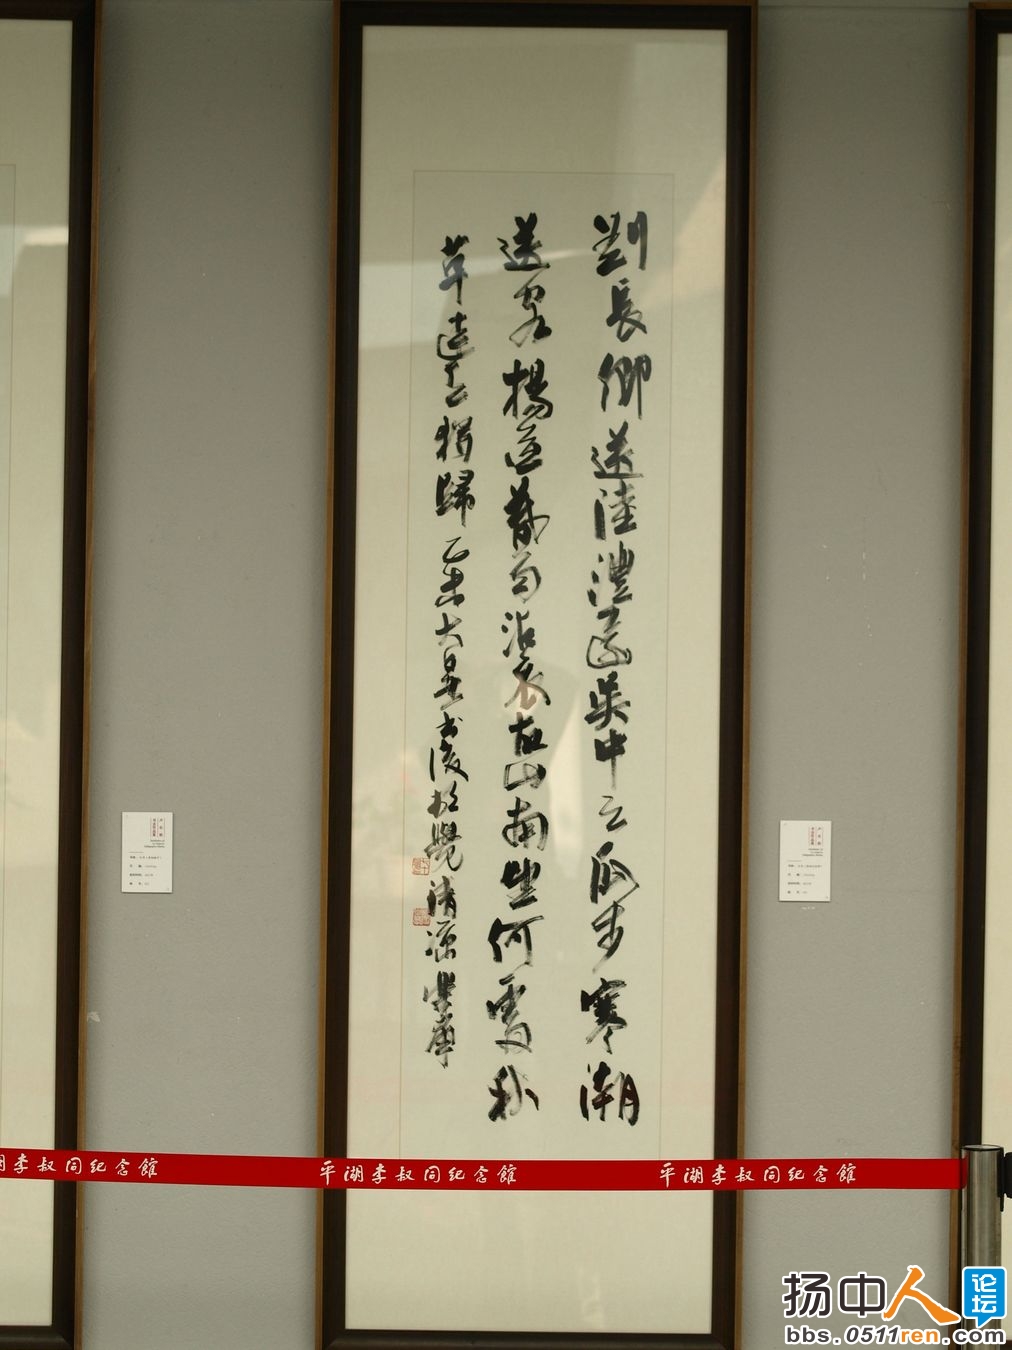 劉長卿送陸澧還吳中云瓜步寒潮
送客楊暮雨沾衣故山南望何處秋
草連天獨歸 乙未大暑書後於覺清涼
平湖李叔同纪念館
平湖李叔同纪念館
湖李叔同纪念館
扬中人论坛
bbs.0511ren.com